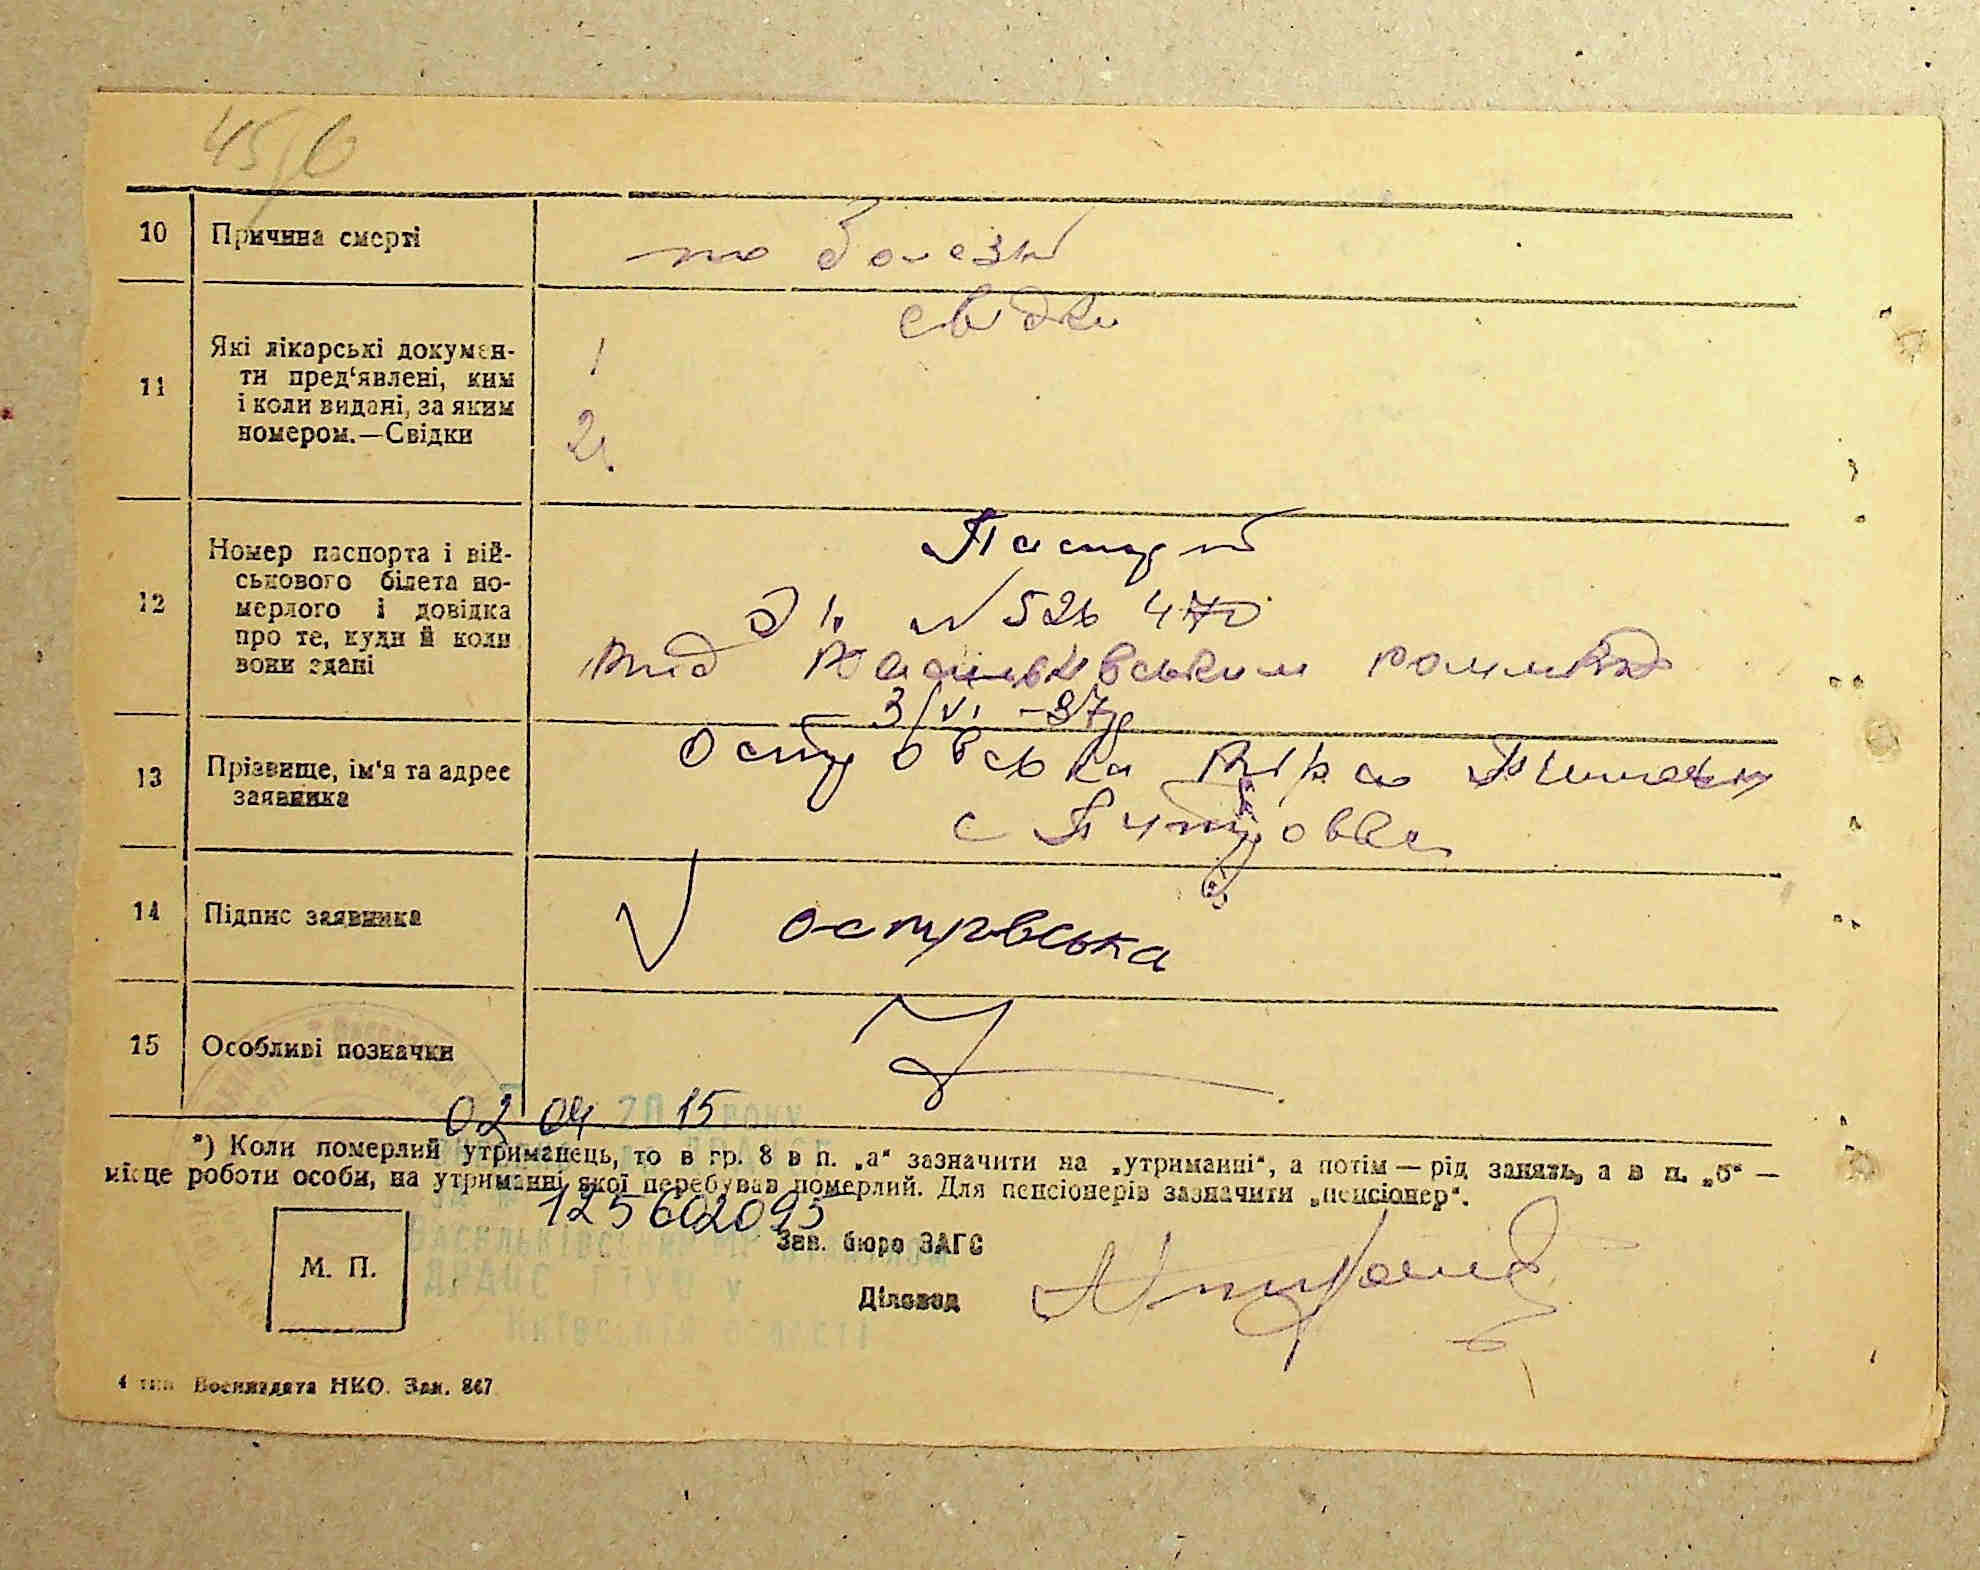 45/6
10 Причина смерті
по болезні
свідки
11 Які лікарські докумен-
ти пред‘явлені, ким
і коли видані, за яким
номером.—Свідки
1
2.
12 Номер паспорта і вій-
ськового білета по-
мерлого і довідка
про те, куди й коли
вони здані
Паспорт
№ 526 470
Васильківським
3/VI -37р
13 Прізвище, ім‘я та адрес
заявника
Островська Віра
с
14 Підпис заявника
V островська
15 Особливі позначки
02 04 20 15 року
*) Коли померлий утриманець, то в гр. 8 в п. „а“ зазначити на „утриманні“, а потім — рід занять, а в п. „б“ —
місце роботи особи, на утриманні якої перебував померлий. Для пенсіонерів зазначити „пенсіонер“.
125602095
М. П.
Зав. бюро ЗАГС
Діловод
ДРАЦС ГТУЮ у
Київській області
4 тип Воениздата НКО. Зак. 867